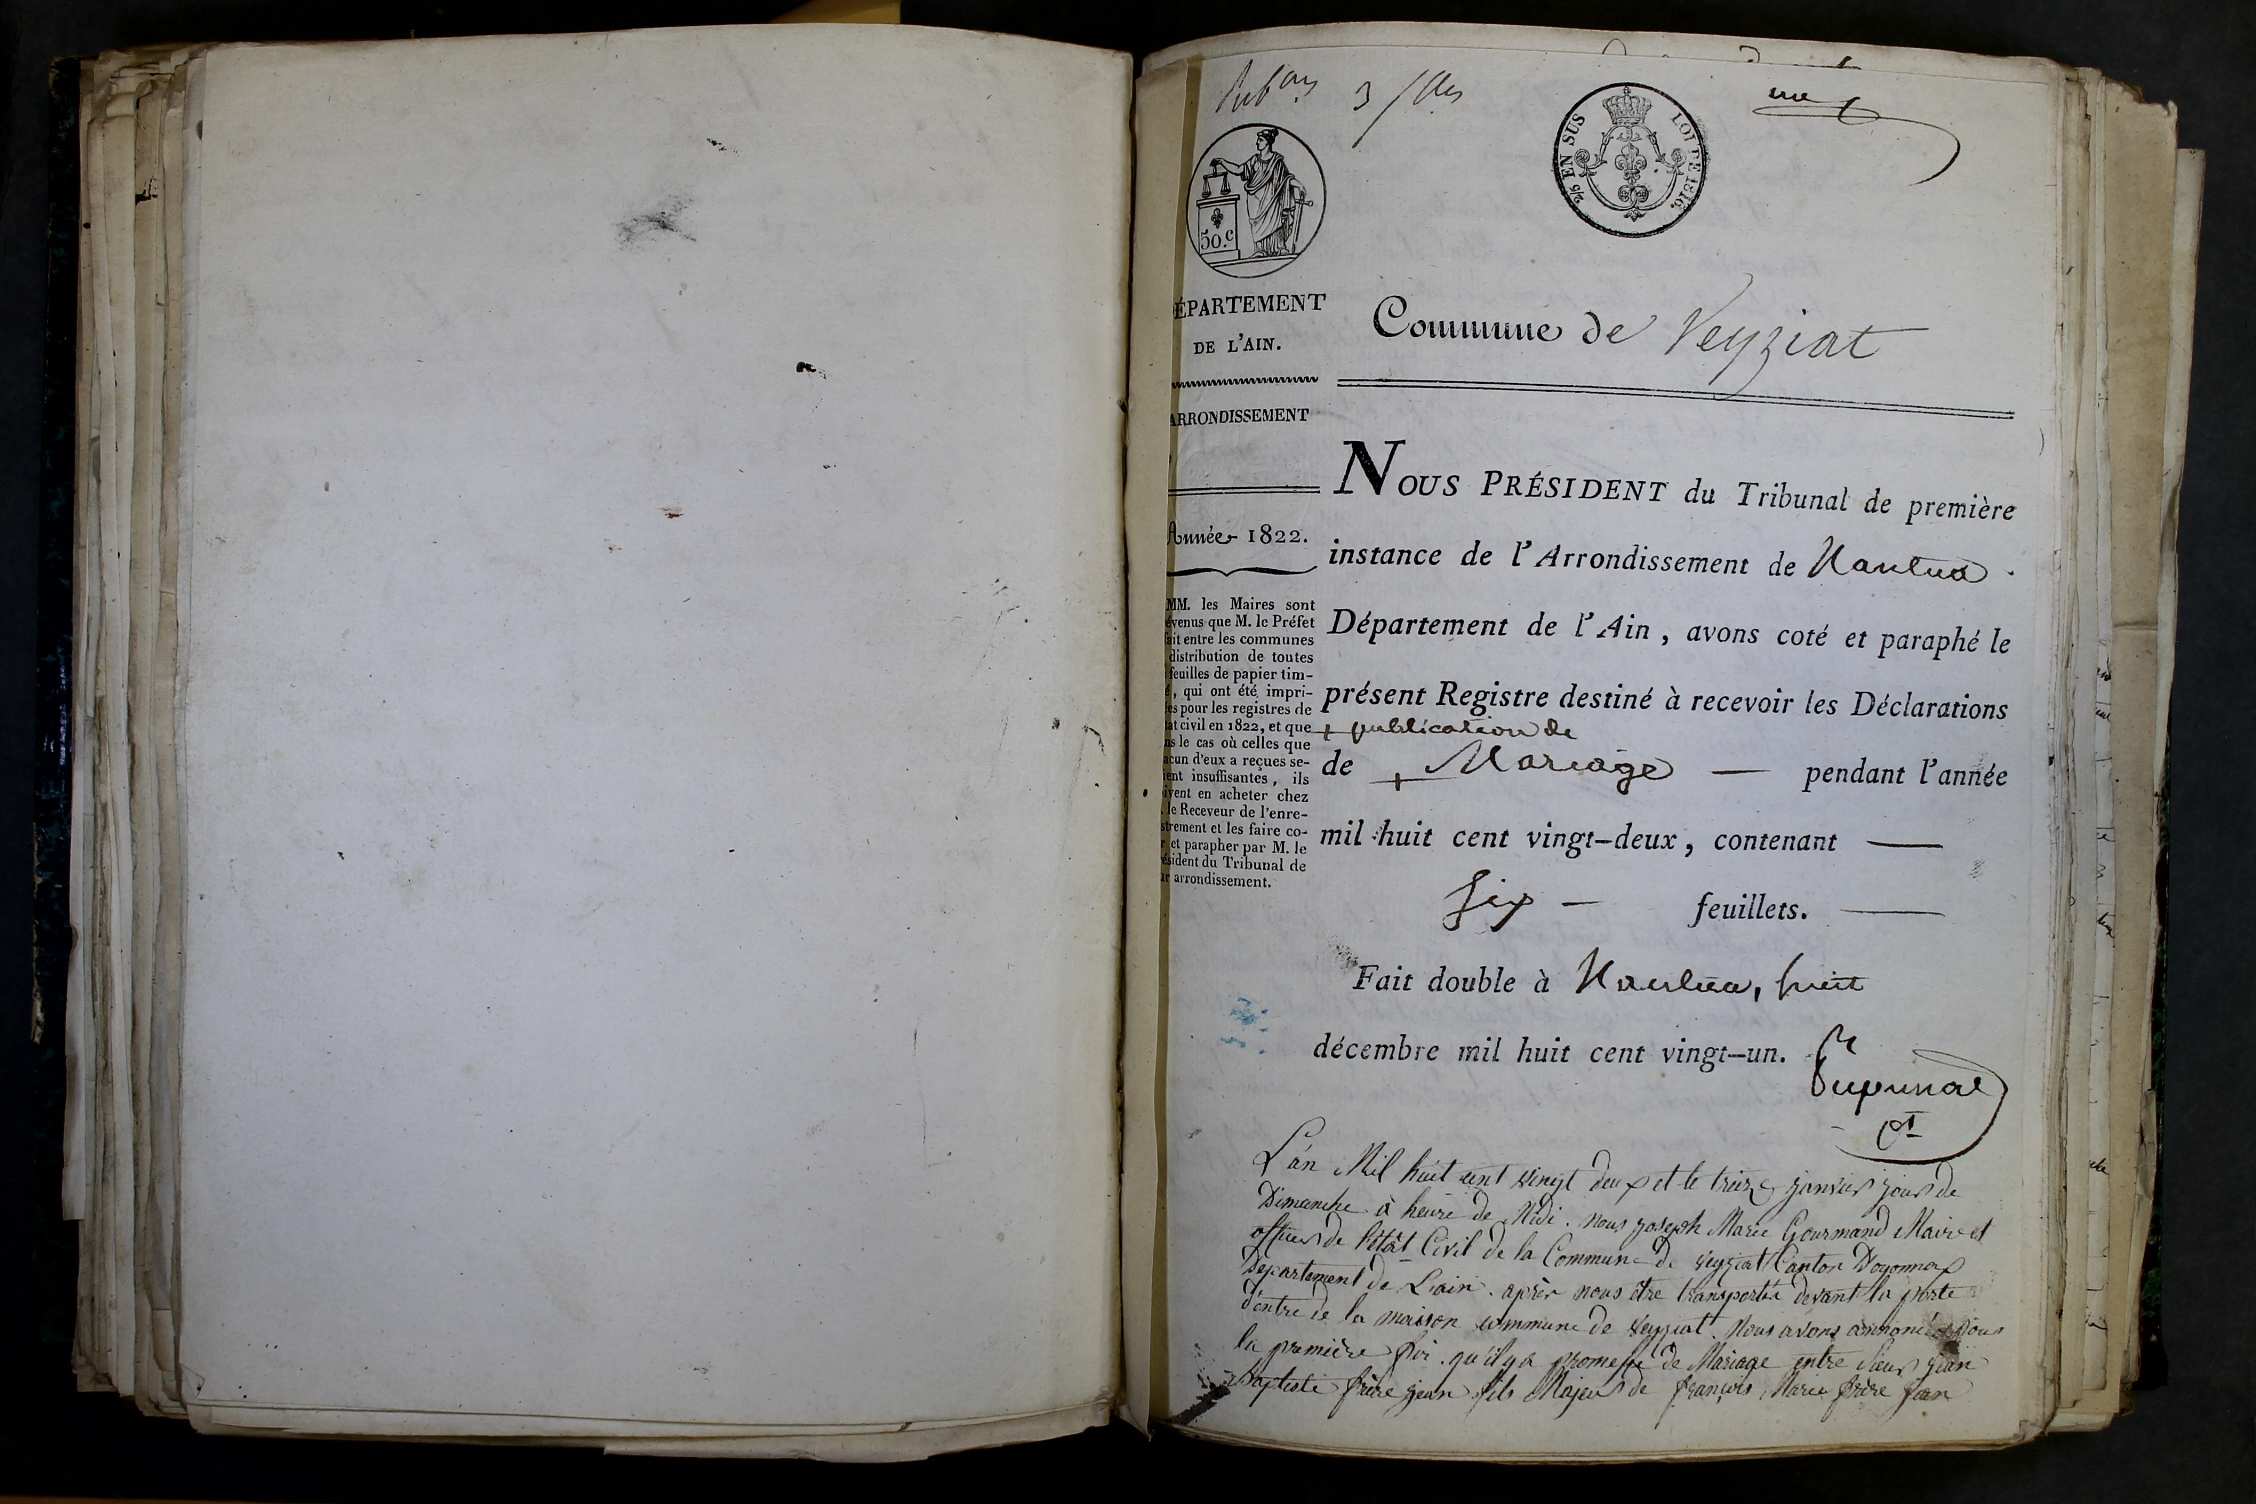 Pub.ons 3 f.lles
une
2/5 EN SUS LOI DE 1816.
50.c
ÉPARTEMENT
DE L'AIN.
ARRONDISSEMENT
Année 1822.
MM. les Maires sont
évenus que M. le Préfet
fait entre les communes
distribution de toutes
feuilles de papier tim-
é, qui ont été impri-
es pour les registres de
tat civil en 1822, et que
ns le cas où celles que
acun d'eux a reçues se-
ient insuffisantes, ils
ivent en acheter chez
. le Receveur de l'enre-
strement et les faire co-
r et parapher par M. le
résident du Tribunal de
ur arrondissement.
Commune de Veyziat
NOUS PRÉSIDENT du Tribunal de première
instance de l'Arrondissement de Nantua
Département de l'Ain, avons coté et paraphé le
présent Registre destiné à recevoir les Déclarations
+ publication de
de + Mariage — pendant l'année
mil huit cent vingt-deux, contenant —
six — feuillets. —
Fait double à Nantua, huit
décembre mil huit cent vingt-un.
L'an Mil huit cent vingt deux et le treize janvier jour de
Dimanche à heure de Midi. nous joseph Marie Gourmand Maire et
officier de l'état Civil de la Commune de veyziat Canton D'oyonnax
Departement de L'ain. après nous être transporté devant la porte
d'entre de la maison commune de veyziat. Nous avons annoncé pour
la première foi. qu'il y a promesse de Mariage entre sieur jean
Baptiste frère jean fils Majeur de françois Marie frère jean